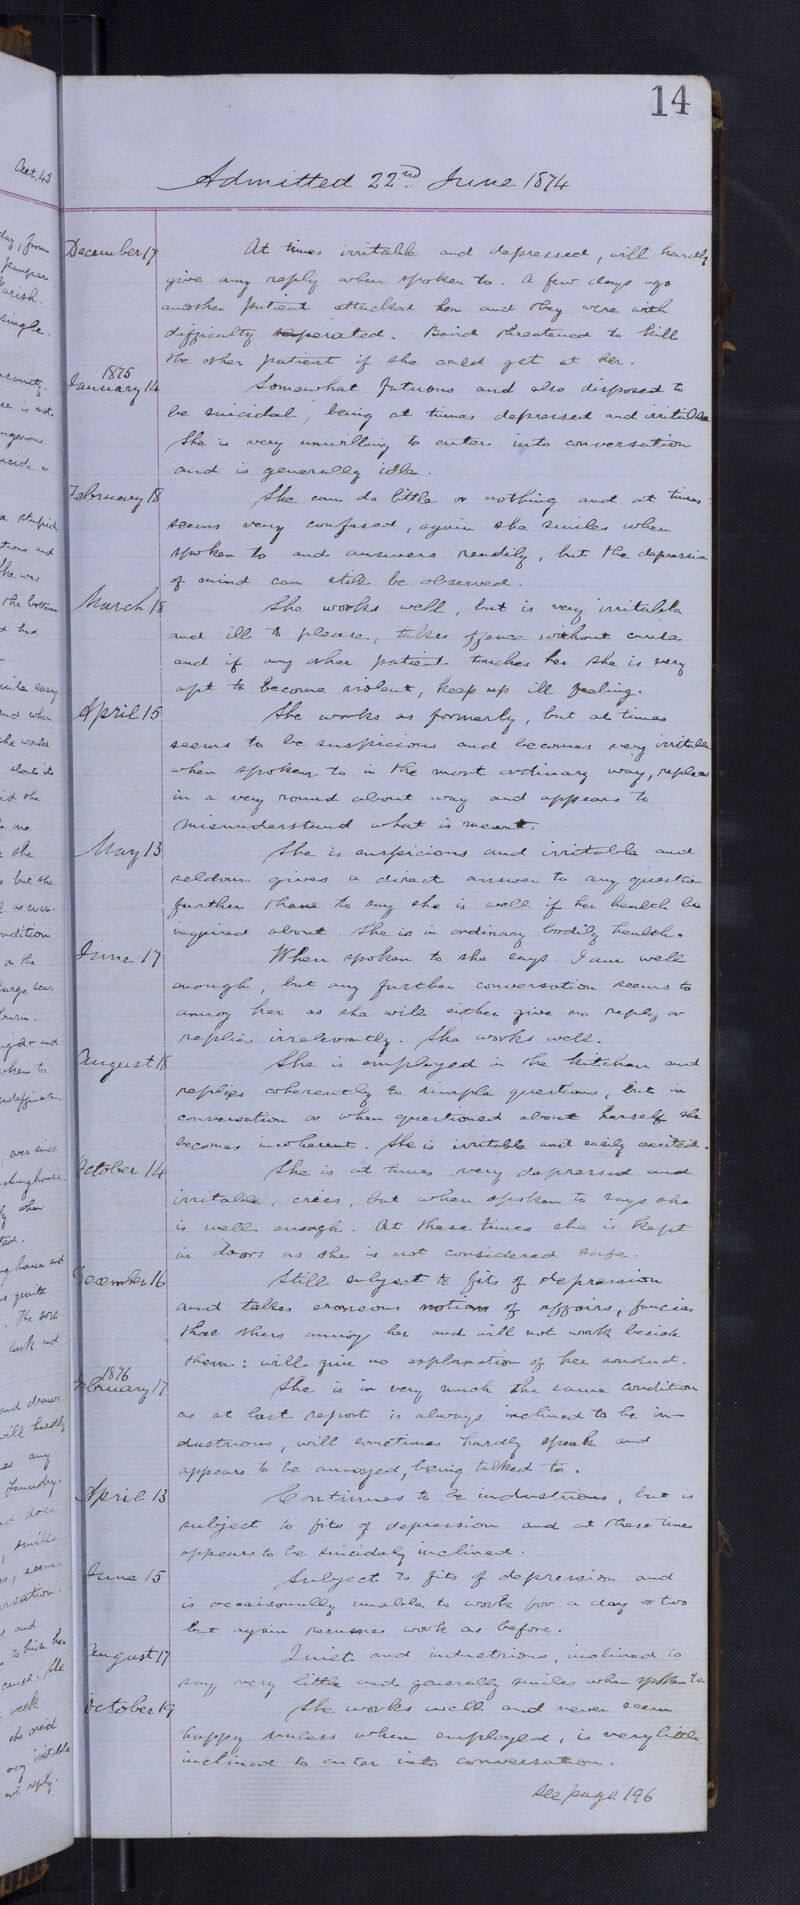 14
Aet. 45
Admitted 22nd June 1874
December 17 At times irritable and depressed, will hardly
give any reply when spoken to. A few days ago
another patient attacked her and they were with
difficulty seperated. Baird threatened to kill
the other patient if she could get at her.
1875
January 14 Somewhat fatuous and also disposed to
be suicidal, being at times depressed and irritable
She is very unwilling to enter into conversation
and is generally idle.
February 18 She can do little or nothing and at times
seems very confused, again she smiles when
spoken to and answers readily, but the depression
of mind can still be observed.
March 18 She works well, but is very irritable
and ill to please, takes offence without cause
and if any other patient touches her she is very
apt to become violent, keep up ill feeling.
April 15 She works as formerly, but at times
seems to be suspicious and becomes very irritable
when spoken to in the most ordinary way, replies
in a very round about way and appears to
misunderstand what is meant.
May 13 She is suspicious and irritable and
seldom gives a direct answer to any question
further than to say she is well if her health be
inquired about. She is in ordinary bodily health.
June 17 When spoken to she says I am well
enough, but any further conversation seems to
annoy her as she will either give no reply or
replies irrelevantly. She works well.
August 18 She is employed in the kitchen and
replies coherently to simple questions, but in
conversation or when questioned about herself she
becomes incoherent. She is irritable and easily excited.
October 14 She is at times very depressed and
irritable, cries, but when spoken to says she
is well enough. At these times she is kept
in doors as she is not considered safe.
December 16 Still subject to fits of depression
and takes eroneous notions of affairs, fancies
that others annoy her and will not work beside
them: will give no explanation of her conduct.
1876
February 17 She is in very much the same condition
as at last report is always inclined to be in-
dustrious, will sometimes hardly speak and
appears to be annoyed, being talked to.
April 13 Continues to be industrious, but is
subject to fits of depression and at these times
appears to be suicidaly inclined.
June 15 Subject to fits of depression and
is occaisonally unable to work for a day or two
but again resumes work as before.
August 17 Quiet and industrious, inclined to
say very little and generally smiles when spoken to.
October 19 She works well and never seems
happy unless when employed, is very little
inclined to enter into conversation.
See page 196